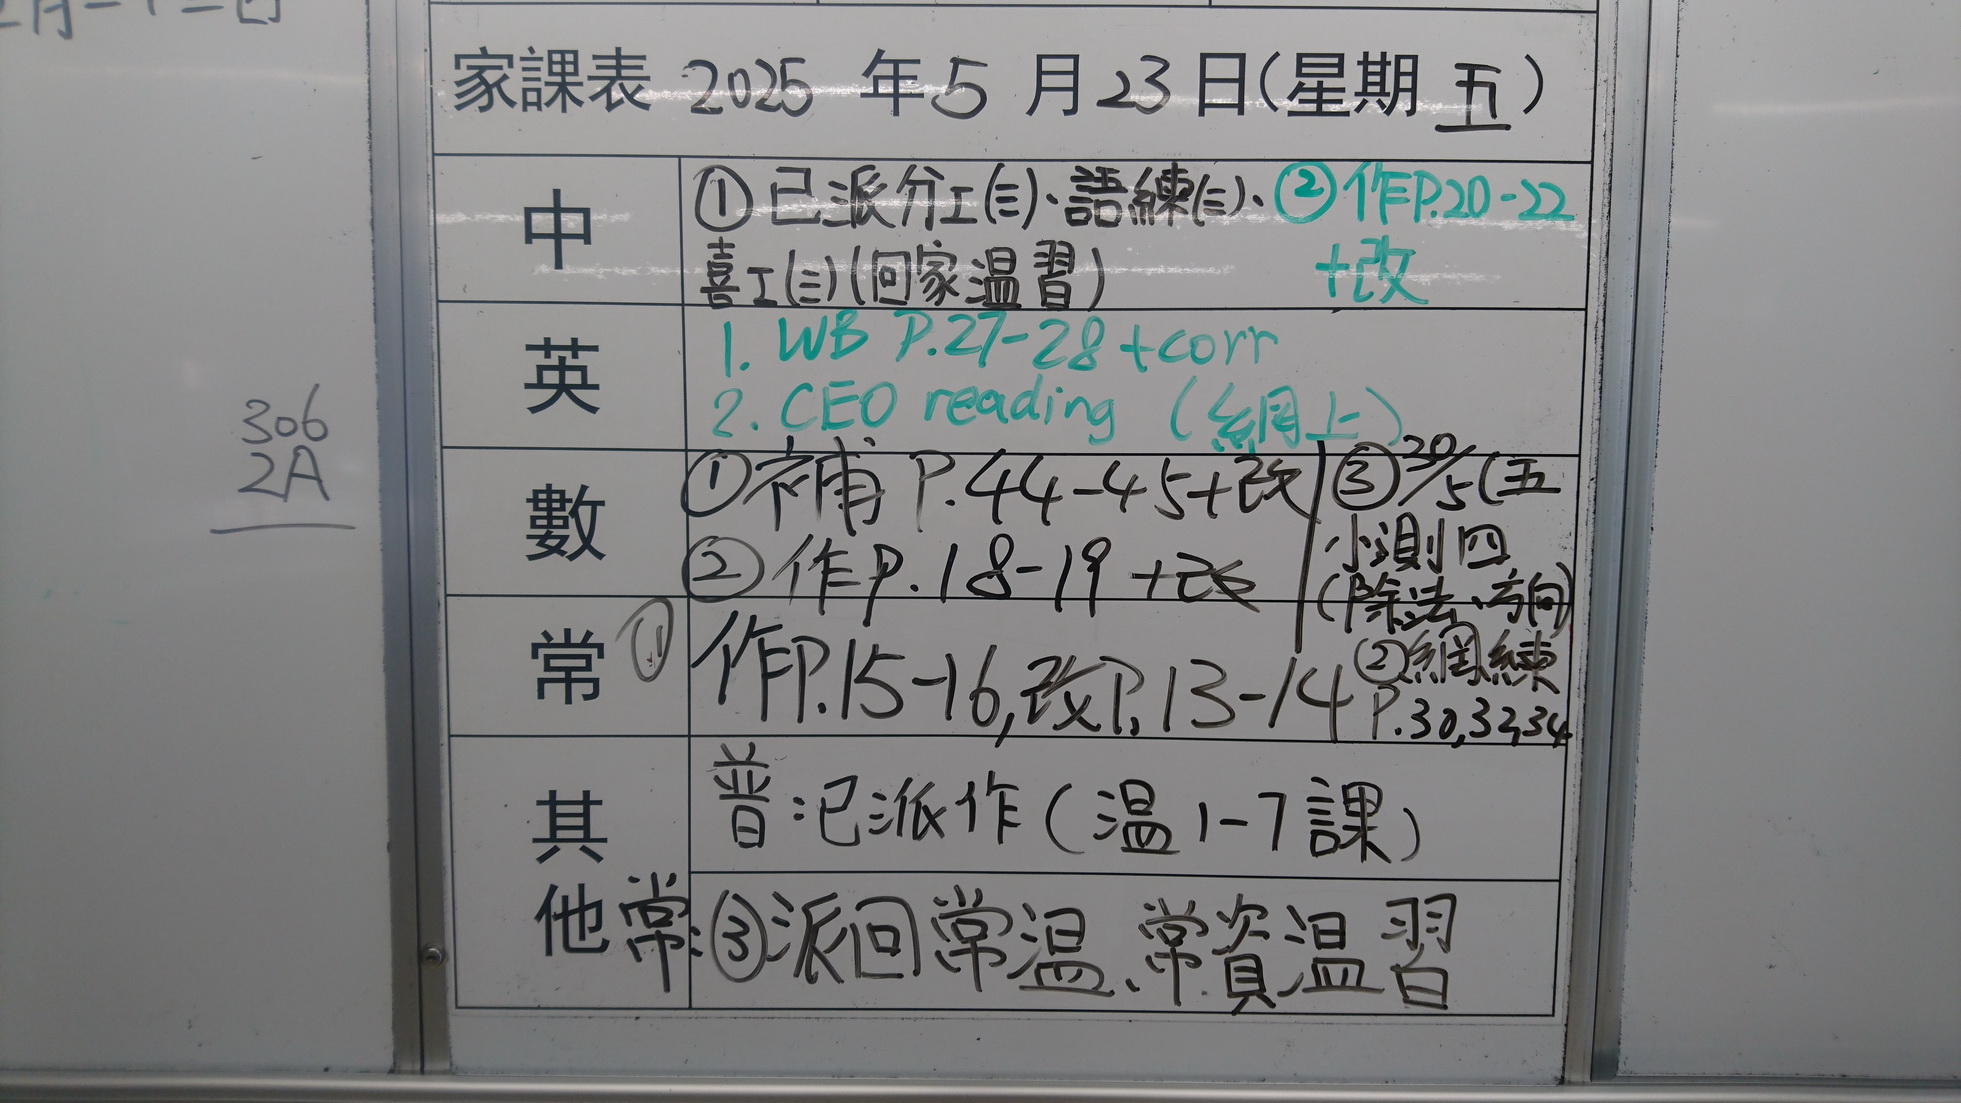 家課表 2025 年 5 月 23 日(星期 五)
中
①已派分工(三)、語練(三)、
喜工(三)(回家温習)
②作P.20-22
+改
英
1. WB P.27-28 +corr
2. CEO reading (網上)
數
①補 P.44-45+改
②作P.18-19 +改
③30/5(五
小測四
(除法、方向)
常
① 作P.15-16,改P.13-14
②網練
P.30,32,34
其他
普:已派作(温1-7課)
常:③派回常温、常資温習
306
2A